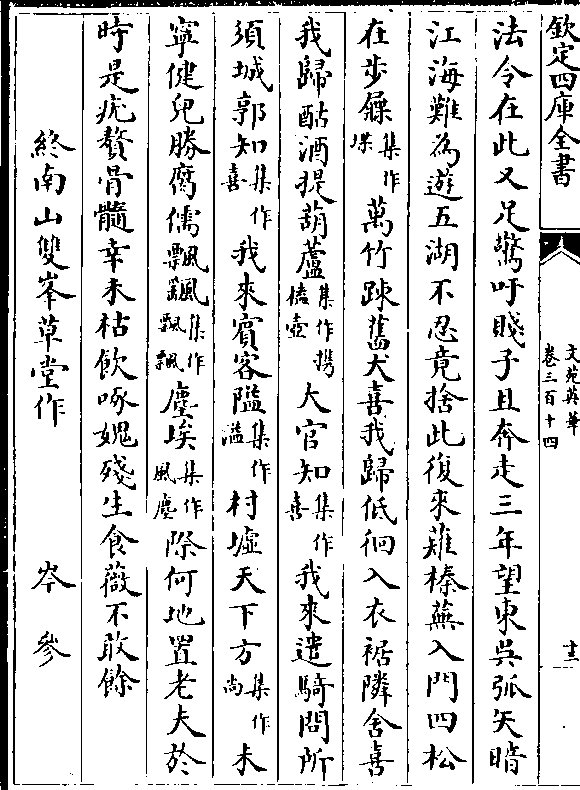 欽定四庫全書
文苑英華
卷三百十四
十三
法令在此又足驚吁賤子且奔走三年望東吳弧矢暗
江海難為遊五湖不忍竟捨此復來薙榛蕪入門四松
在步屧集作堞萬竹疎舊犬喜我歸低徊入衣裾隣舍喜
我歸酤酒提葫蘆集作携榼壺大官知集作喜我來遣騎問所
須城郭知集作喜我來賓客隘集作溢村墟天下方集作尚未
寧健兒勝腐儒飄颻集作飄飄塵埃集作風塵際何地置老夫於
時是疣贅骨髓幸未枯飲啄媿殘生食薇不敢餘
終南山雙峯草堂作 岑參